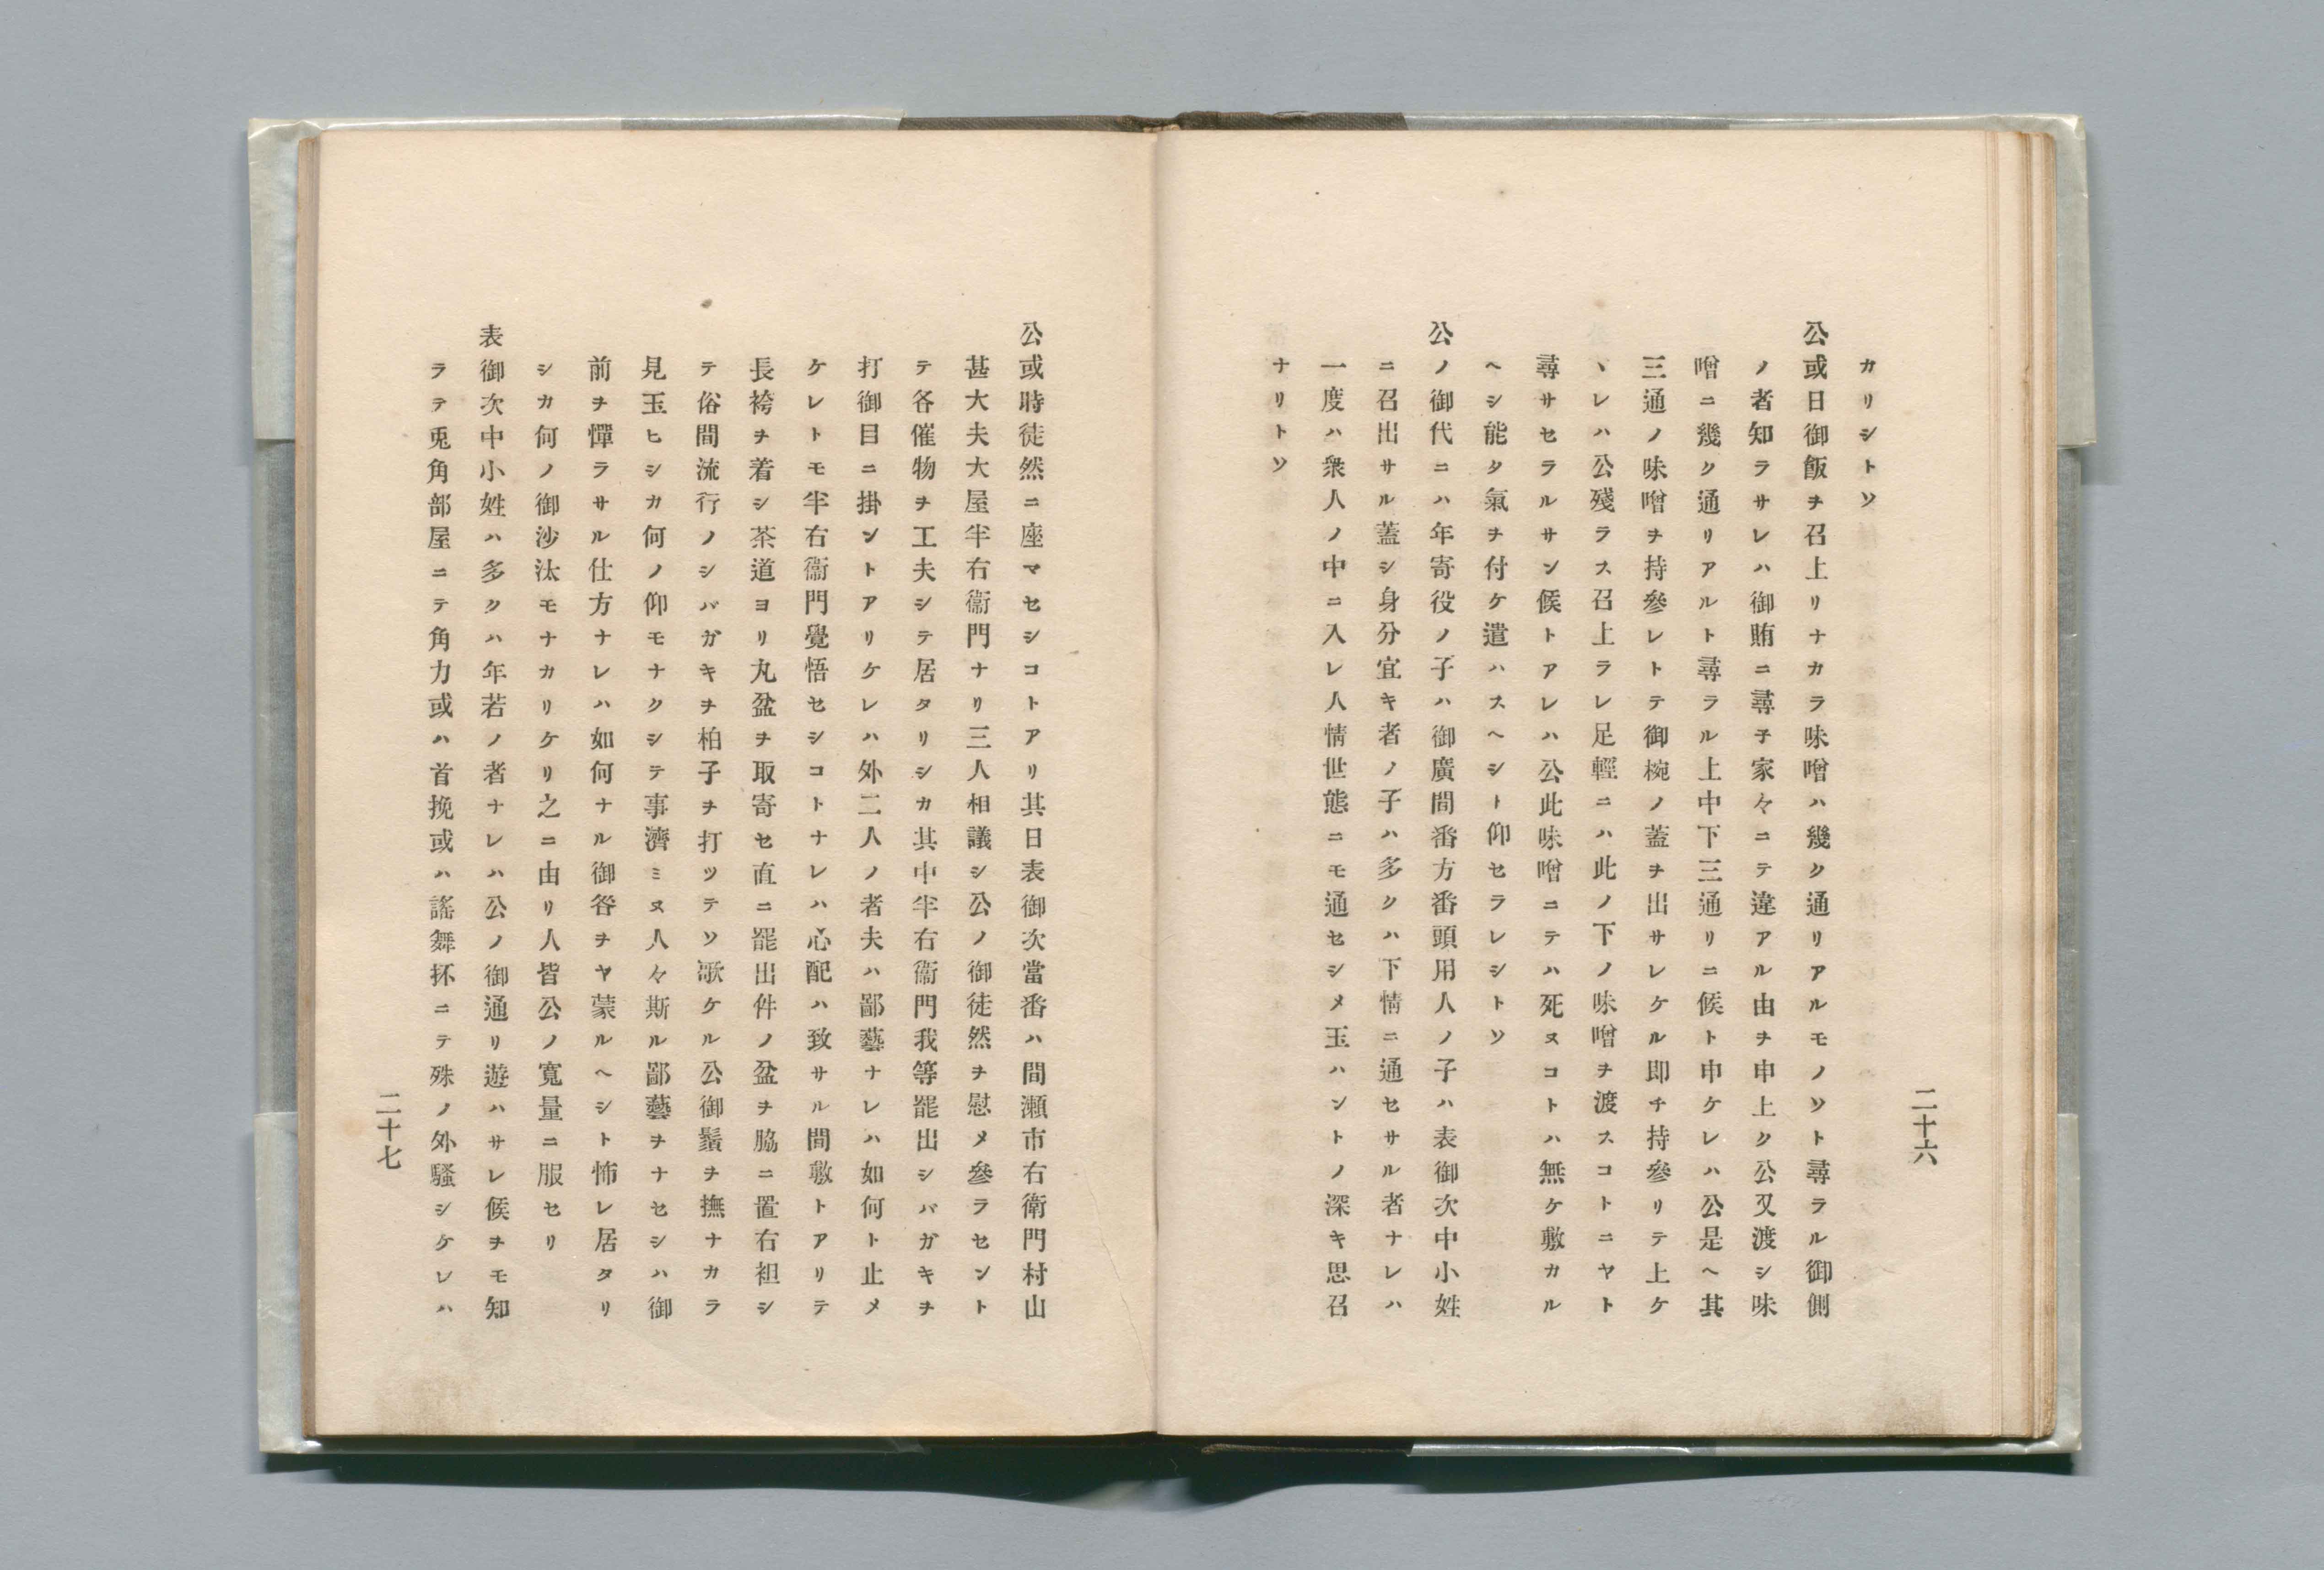 二十六
カリシトソ
公或日御飯ヲ召上リナカラ味噌ハ幾ク通リアルモノソト尋ラル御側
ノ者知ラサレハ御賄ニ尋子家々ニテ違アル由ヲ申上ク公又渡シ味
噌ニ幾ク通リアルト尋ラル上中下三通リニ候ト申ケレハ公是ヘ其
三通ノ味噌ヲ持參レトテ御椀ノ蓋ヲ出サレケル即チ持參リテ上ケ
ヽレハ公殘ラス召上ラレ足輕ニハ此ノ下ノ味噌ヲ渡スコトニヤト
尋サセラルサン候トアレハ公此味噌ニテハ死ヌコトハ無ケ敷カル
ヘシ能タ氣ヲ付ケ遣ハスヘシト仰セラレシトソ
公ノ御代ニハ年寄役ノ子ハ御廣間番方番頭用人ノ子ハ表御次中小姓
ニ召出サル蓋シ身分宜キ者ノ子ハ多クハ下情ニ通セサル者ナレハ
一度ハ衆人ノ中ニ入レ人情世態ニモ通セシメ玉ハントノ深キ思召
ナリトソ
公或時徒然ニ座マセシコトアリ其日表御次當番ハ間瀬市右衛門村山
甚大夫大屋半右衞門ナリ三人相議シ公ノ御徒然ヲ慰メ參ラセント
テ各催物ヲ工夫シテ居タリシカ其中半右衞門我等罷出シバガキヲ
打御目ニ掛ントアリケレハ外二人ノ者夫ハ鄙藝ナレハ如何ト止メ
ケレトモ半右衞門覺悟セシコトナレハ心配ハ致サル間敷トアリテ
長袴ヲ着シ茶道ヨリ丸盆ヲ取寄セ直ニ罷出件ノ盆ヲ脇ニ置右袒シ
テ俗間流行ノシバガキヲ柏子ヲ打ツテソ歌ケル公御鬚ヲ撫ナカラ
見玉ヒシカ何ノ仰モナクシテ事濟ミヌ人々斯ル鄙藝ヲナセシハ御
前ヲ憚ラサル仕方ナレハ如何ナル御咎ヲヤ蒙ルヘシト怖レ居タリ
シカ何ノ御沙汰モナカリケリ之ニ由リ人皆公ノ寬量ニ服セリ
表御次中小姓ハ多クハ年若ノ者ナレハ公ノ御通リ遊ハサレ候ヲモ知
ラテ兎角部屋ニテ角力或ハ首挽或ハ謠舞抔ニテ殊ノ外騷シケレハ
二十七